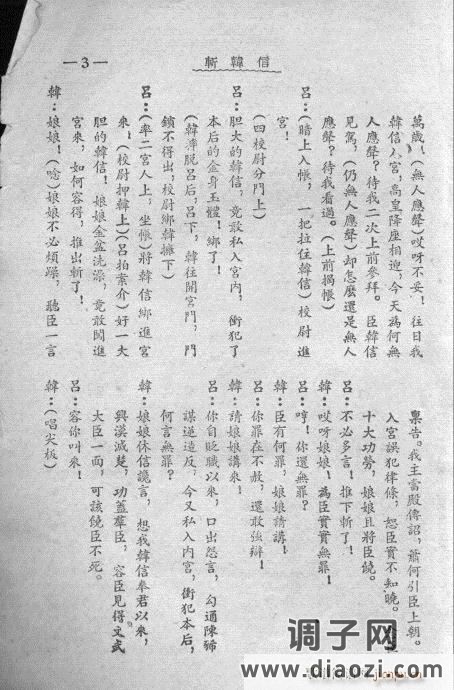 —3—
斬韓信
萬歲！（無人應聲）哎呀不妥！往日我
韓信入宮，高皇降座相迎，今天為何無
人應聲？待我二次上前參拜。臣韓信
見駕，（仍無人應聲）却怎麼還是無人
應聲？待我看過。（上前揭帳）
呂：（暗上入帳，一把拉住韓信）校尉進
宮！
（四校尉分門上）
呂：胆大的韓信，竟敢私入宮內，衝犯了
本后的金身玉體！綁了！
（韓掙脫呂后，呂下，韓往開宮門，門
鎖不得出，校尉綁韓擁下）
呂：（率二宮人上，坐帳）將韓信綁進宮
來！（校尉押韓上）（呂拍案介）好一大
胆的韓信！娘娘金盆洗澡，竟敢闖進
宮來，如何容得，推出斬了！
韓：娘娘！（唸）娘娘不必煩躁，聽臣一言
稟告。我主當殿傳詔，蕭何引臣上朝。
入宮誤犯律條，恕臣實不知曉。
十大功勞，娘娘且將臣饒。
呂：不必多言！推下斬了！
韓：哎呀娘娘！為臣實實無罪！
呂：哼！你還無罪？
韓：臣有何罪，娘娘請講！
呂：你罪在不赦，還敢強辯！
韓：請娘娘講來！
呂：你自貶職以來，口出怨言，勾通陳豨
謀逆造反，今又私入內宮，衝犯本后，
何言無罪？
韓：娘娘休信讒言，想我韓信奉君以來，
興漢滅楚，功蓋羣臣，容臣見得文武
大臣一面，可該饒臣不死。
呂：容你叫來！
韓：（唱尖板）
调子网
www.diaozi.com